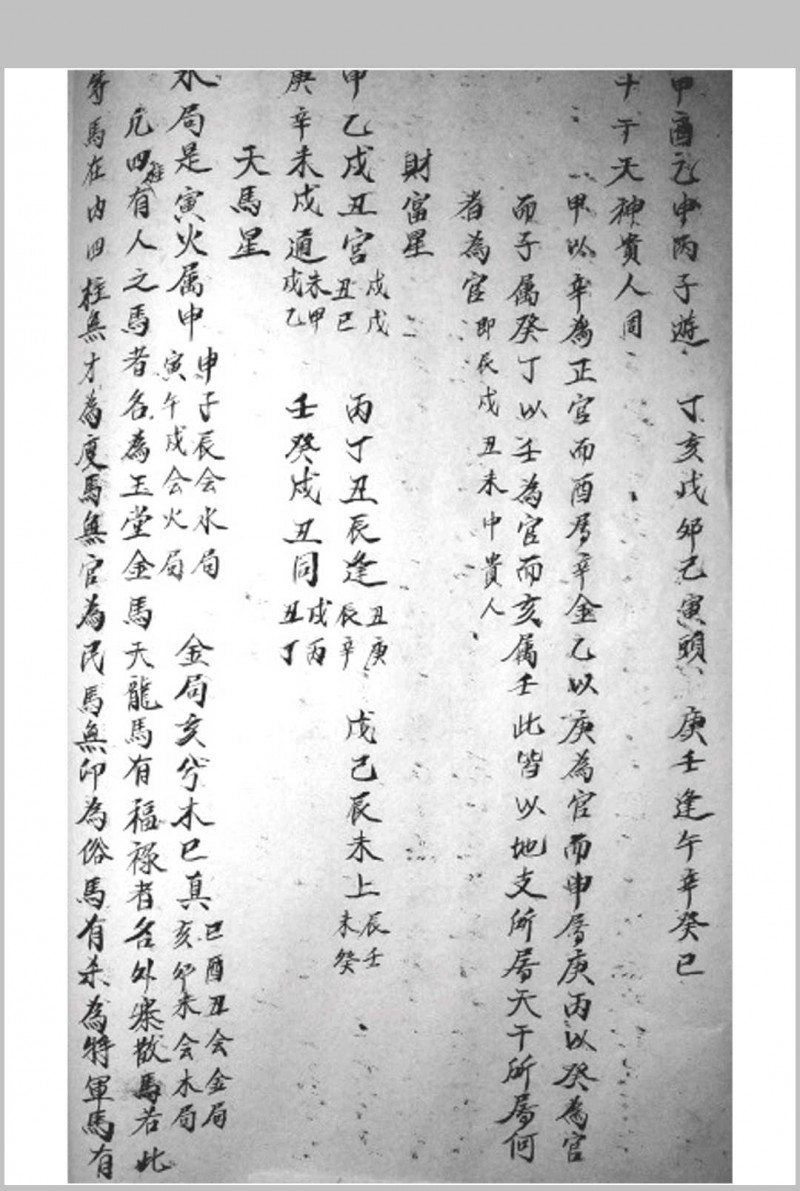 甲酉乙申丙子遊 丁亥戊卯己寅頭 庚壬逢午辛癸巳
十干天神貴人同
甲以辛為正官而酉属辛金乙以庚為官而申属庚丙以癸為官
而子属癸丁以壬為官而亥属壬此皆以地支所属天干所属何
者為官即辰戌丑未中貴人
財富星
甲乙戌丑宮戌戊丑巳 丙丁丑辰逢丑庚辰辛 戊己辰未上辰壬未癸
庚辛未戌通未甲戌乙 壬癸戌丑同戌丙丑丁
天馬星
水局是寅火属申申子辰会水局寅午戌会火局 金局亥兮木巳真巳酉丑会金局亥卯未会木局
凡四柱有人之馬者名為玉堂金馬天龍馬有福祿者名外寨散馬若此
等馬在内四柱無才為度馬無官為民馬無印為俗馬有杀為將軍馬有